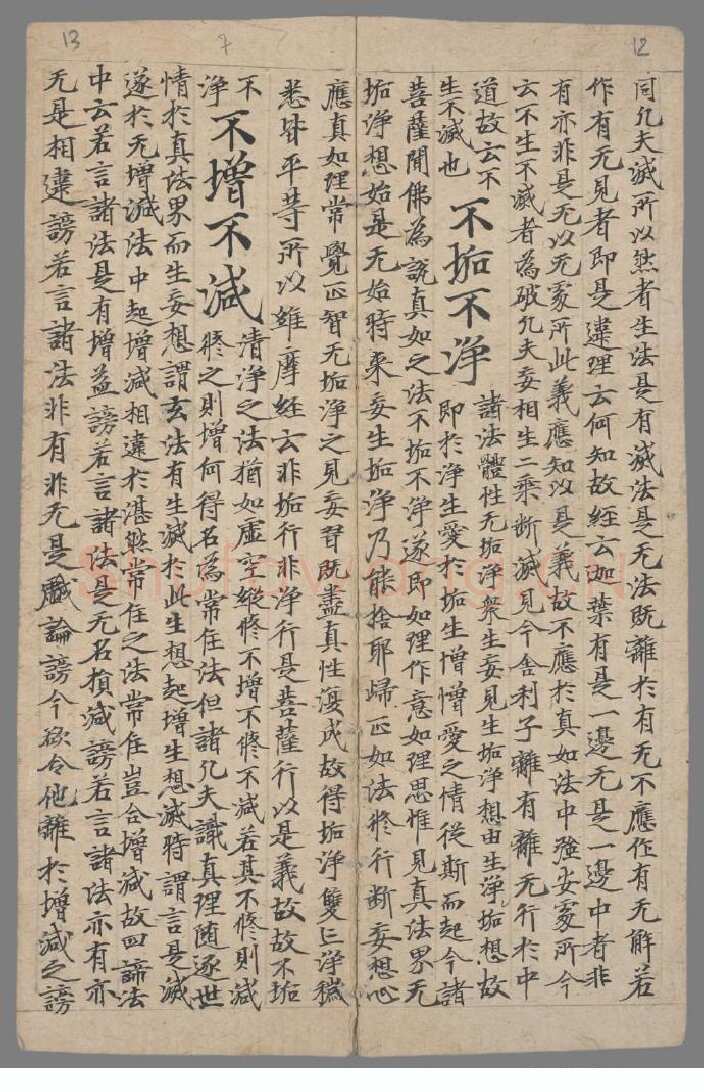 12
同凡夫滅所以然者生法是有滅法是无法既離於有无不應作有无解若
作有无見者即是違理云何知故經云迦葉有是一邊无是一邊中者非
有亦非是无以无家所此義應知以是義故不應於真如法中強安家所今
云不生不滅者為破凡夫妄相生二乘断滅見今舍利子離有離无行於中
道故云不
生不滅也
不垢不浄
諸法體性无垢浄衆生妄見生垢浄想由生浄垢想故
即於浄生愛於垢生憎憎愛之情從斯而起今諸
菩薩聞佛為說真如之法不垢不浄遂即如理作意如理思惟見真法界无
垢浄想始是无始時来妄生垢浄乃能捨耶歸正如法修行断妄想心
應真如理常覺正智无垢浄之見妄習既盡真性復成故得垢浄雙亡浄穢
悉皆平等所以維摩經云非垢行非浄行是菩薩行以是義故故不垢
不
浄
不增不減
清浄之法猶如虛空縱修不增不修不減若其不修則減
修之則增何得名為常住法但諸凡夫識真理随逐世
情於真法界而生妄想謂玄法有生滅於此生想起增生想滅時謂言是滅
遂於无增減法中起增減相違於湛然常住之法常住豈合增減故四諦法
中云若言諸法是有增益謗若言諸法是无名損減謗若言諸法亦有亦
无是相違謗若言諸法非有非无是戲論謗今欲令他離於增減之謗
7
13